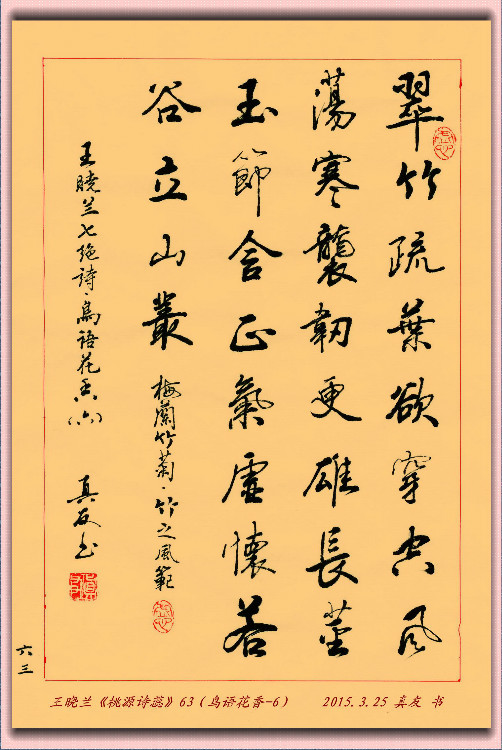 翠竹疏葉欲穿空風
蕩寒襲韌更雄長莖
玉節含正氣虛懷若
谷立山叢 梅蘭竹菊·竹之風範
王晓兰七绝詩·鳥語花香(六) 真友书
六三
王晓兰《桃源诗蕊》63（鸟语花香-6） 2015.3.25 真友 书